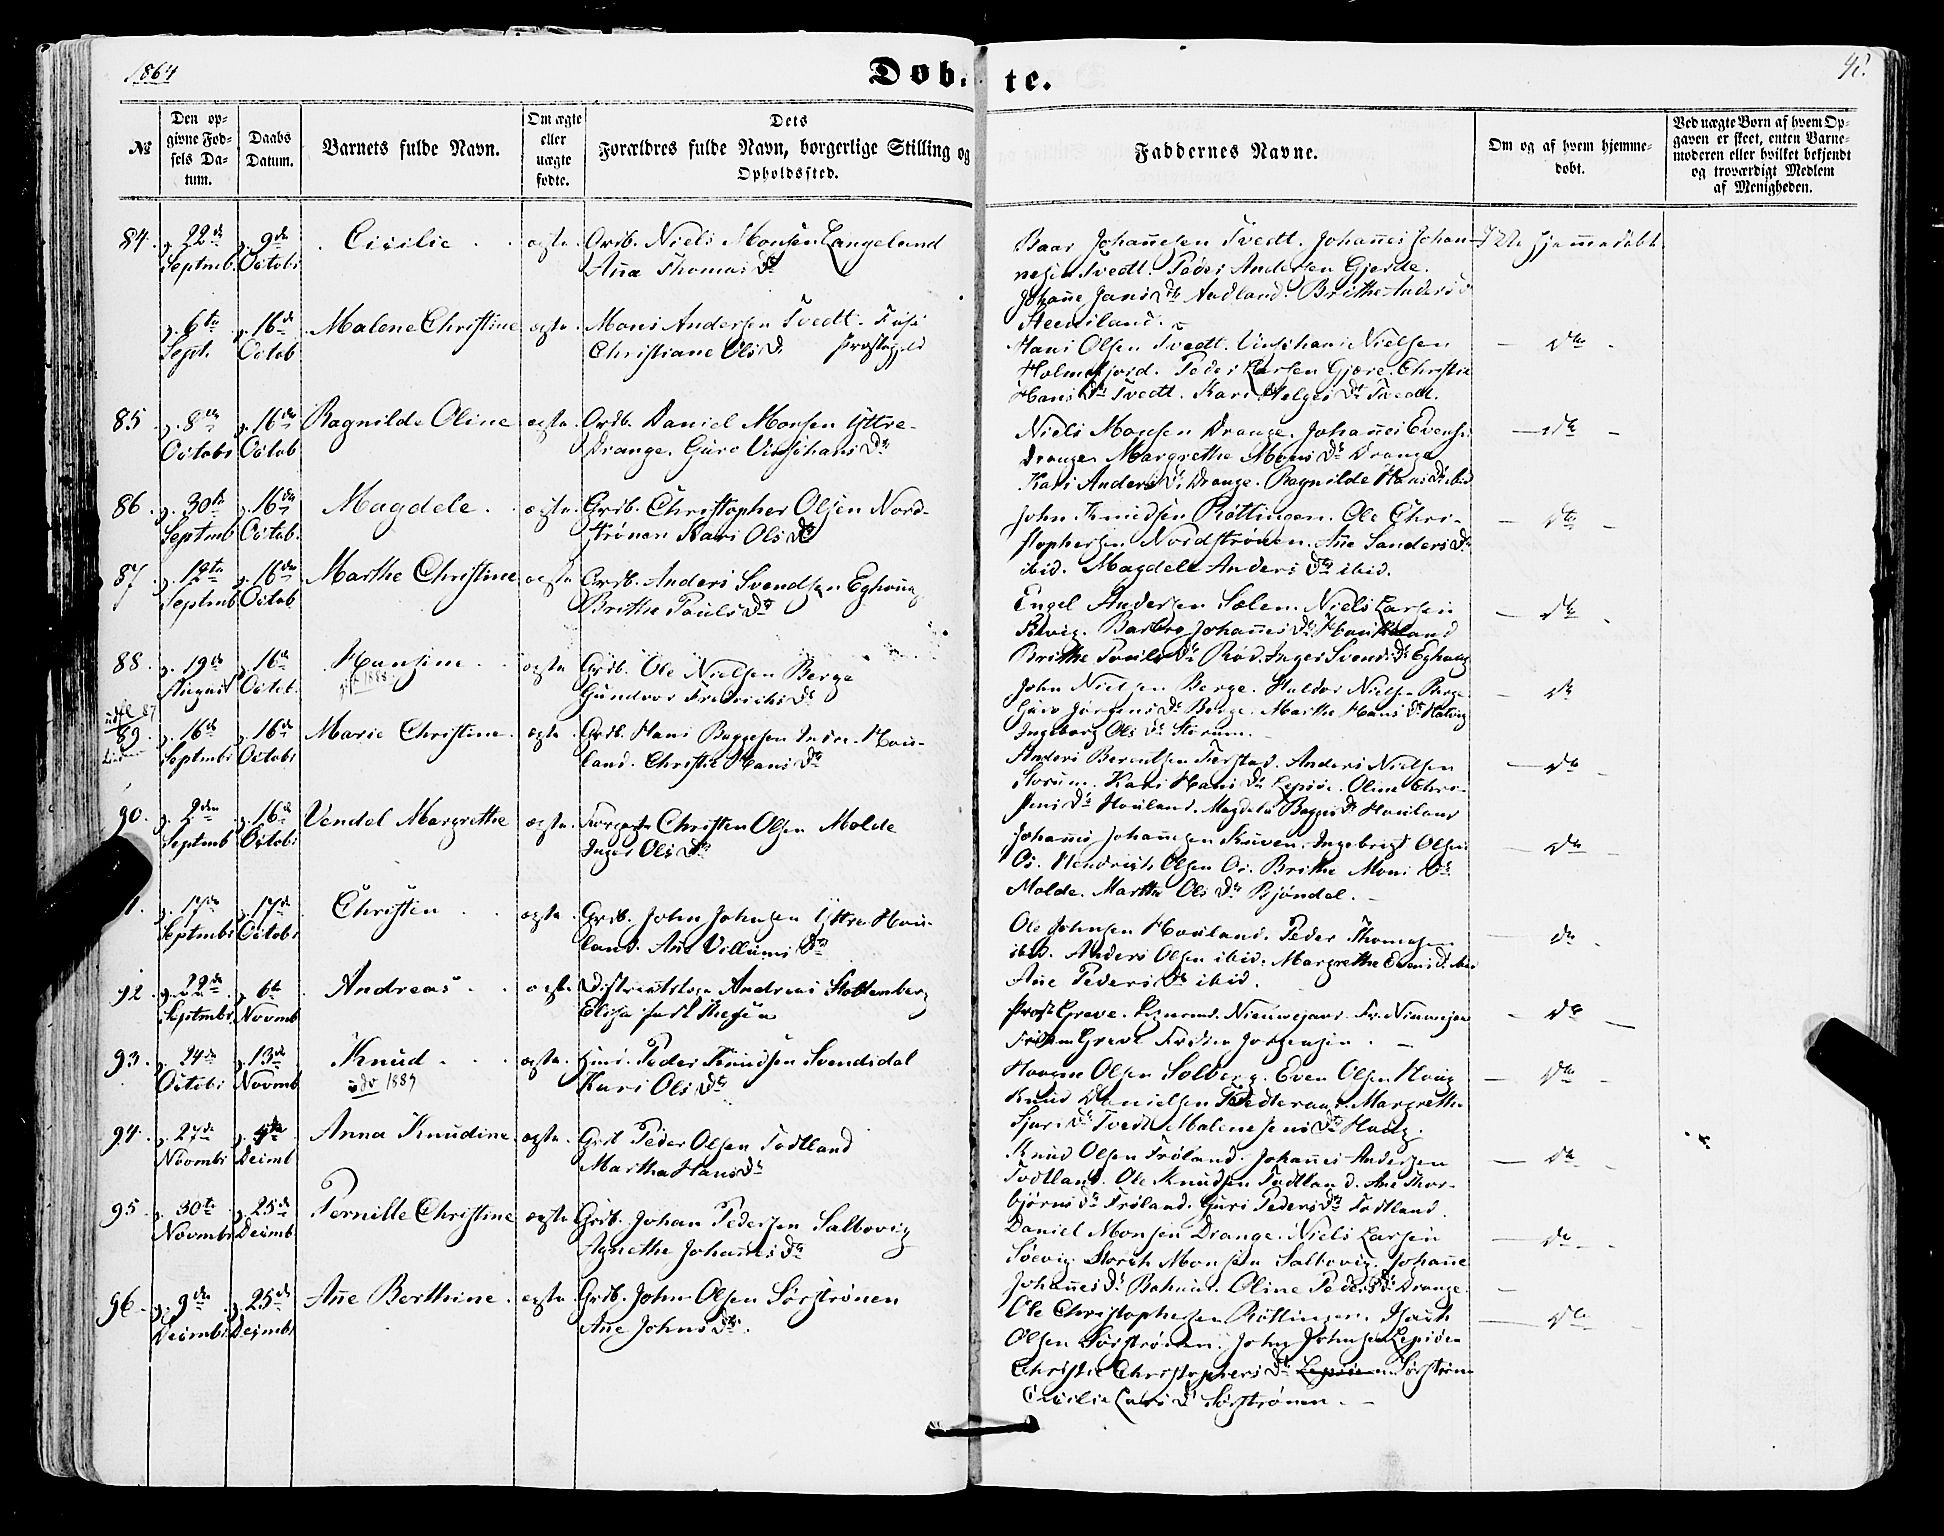 1864
Døb.
te.
No
Den op-
givne Fød-
sels Da-
tum.
Daabs
Datum.
Barnets fulde Navn.
Om ægte
eller
uægte
fødte.
Dets
Forældres fulde Navn, borgerlige Stilling og
Opholdssted.
Faddernes Navne.
Om og af hvem hjemme-
døbt.
Ved uægte Børn af hvem Op-
gaven er skeet, enten Barne-
moderen eller hvilket bekjendt
og troværdigt Medlem
af Menigheden.
84. 22de Septmb. 9de Octobr Cicilie ægte Grdb. Niels Monsen Langeland
Anna Thomas Dtr
Baar Johannesen Tvedt. Johannes Johan-
nesen Tvedt. Peder Andersen Gjerde.
Johanne Jans Dtr Aadland. Brithe Anders D
hjemmedøbt
6te Sept. 16de Octob Malene Christine ægte Mons Andersen Tvedt. Fuse
Christiane Ols D. Præstegjeld
Hans Olsen Tvedt. Nielsen
Holmefjord. Peder Larsen Gjøre. Christie
Hans Dtr Tvedt. Kari Helges Dtr Tvedt.
85. 8de Octobr 16de Octob Ragnilde Oline ægte Grdb. Daniel Monsen Yttre-
Drange. Guro Dtr
Niels Monsen Drange. Johannes Evens.
Drange. Margrethe Mons Dtr Drange
Kari Anders Dtr Drange. Ragnilde Hans Dtr ibid
86. 30te Septmb 16de Octob. Magdele ægte Grdb. Christopher Olsen Nord-
strønen Kari Ols Dtr
John Knudsen Røttingen. Ole Chri-
stophersen Nordstrønen. Ane Sanders Dtr
ibid. Magdele Anders Dtr ibid.
87 12te Septmb 16de Octob Marthe Christine ægte Grdb. Anders Svendsen Eghaug
Brithe Pauls Dtr
Engel Andersen Sælen. Niels Larsen
Barbro Johannes Dtr Haukeland
Brithe Pouls Dtr Rød. Inger Svends Dtr Eghaug
88. 19de August 16de Octob. Hansine ægte Grdb. Ole Nielsen Berge
1888
Gundvor Frederichs Dtr
John Nielsen Berge. Haldor Nielsen Berge
Guro Jørgens Dtr Berge. Marthe Hans Dtr
Ingeborg Ols Dtr Storum.
87
89. 16de Septmbr 16de Octobr Marie Christine ægte Grdb. Hans Baggesen Indre-Hou-
land. Christie Hans Dtr
Anders Berentsen Anders Nielsen
Storum. Kari Hans Dtr Lepsøe. Oline Chri-
stens Dtr Houland. Magdela Bagges Dtr Houland
90. 2den Septmb 16de Octobr Vendel Margrethe ægte Christen Olsen Molde
Inger Ols Dtr
Johannes Johannesen Kuven. Ingebrigt Olsen
Os. Hendrich Olsen Os. Brithe Mons Dtr
Molde. Marthe Ols Dtr Bjøndal.
1. 17de Septmbr 17de Octobr Christen ægte Grdb. John Johnsen Yttre Hou-
land. Ane Villums Dtr
Ole Johnsen Houland. Peder Thomasen
ibid. Anders Olsen ibid. Margrethe Evens Dtr ibid
Ane Peders Dtr ibid.
92 22de Septmbr 6te Novmb Andreas ægte Andreas Stoltenberg
Elisa
Provst Greve. Nieuwejaar. Fr. Nieuwejaar
Greve Jørgensen.
93. 24de Octobr 13de Novmb Knud ægte Peder Knudsen Svendsdal
1889
Kari Ols Dtr
Haagen Olsen Solberg. Even Olsen Haug
Knud Danielsen Margrethe
Dtr Tvedt Malene Jens Dtr Haug.
94. 27de Novmbr 4de Decmb Anna Knudine ægte Grdb Peder Olsen Todtland
Martha Hans Dtr
Knud Olsen Frøland. Johannes Andersen
Todtland. Ole Knudsen Todtland. Ane Thor-
bjørns Dtr Frøland. Guri Peders Dtr Todtland.
95. 30te Novmbr 25de Decmb Pernille Christine ægte Grdb. Johan Pedersen Salbovig
Agnethe Johannes Dtr
Daniel Monsen Drange. Niels Larsen
Søevig. Monsen Salbovig. Johanne
Johannes Dtr Oline Peders Dtr Drange.
96. 9de Decmbr 25de Decmbr Ane Berthine ægte Grdb. John Olsen Sørstrønen
Ane Johns Dtr.
Ole Christophersen Røttingen. Isach
Olsen Sørstrønen. John Johnsen Lepsøe
Christie Christophers Dtr Lepsøe Sørstrønen
Cecilie Lars Dtr Sørstrønen.